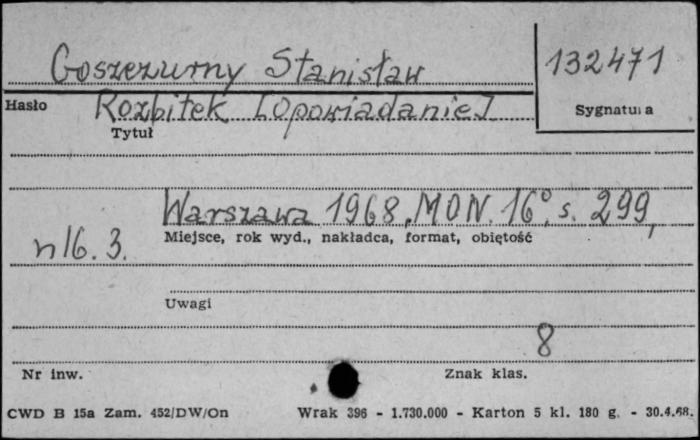 Goszczurny Stanisław
132471
Hasło
Rozbitek [Opowiadanie]
Sygnatura
Tytuł
Warszawa 1968, MON. 16°, s. 299,
Miejsce, rok wyd., nakładca, format, objętość
n16. 3.
Uwagi
8
Nr inw.
Znak klas.
CWD B 15a Zam. 452/DW/On
Wrak 396 - 1.730.000 - Karton 5 kl. 180 g. - 30.4.68.